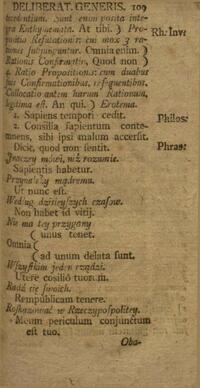 DELIBERAT. GENERIS. 109
ſecdentium. Sunt enim poſita inte-
gra Enthymemata. At tibi. } Pro-
miſſio Refutationis: eui mox 3 ra-
tiones ſubjunguntur. Omnia enim. }
Rationis Confirmatio, Quod non }
2. Ratio Propoſitionis: cum duabus
ſuis Confirmationibus, ſeſequentibus.
Collocatio autem harum Rationum,
legitima eſt. An qui. } Erotema.
Rh: Inv:
1. Sapiens tempori cedit.
Philoſ:
2. Conſilia ſapientum conte-
mnens, ſibi ipſi malum accerſit.
Dicic, quod non ſentit.
Phraſ:
Inaczey mowi, niż rozumie.
Sapientis habetur.
Przynależy mądremu.
Ut nunc eſt.
Według dzisieyſzych czaſow.
Non habet id vitij.
Nu ma tey przygany
{ unus tenet.
Omnia {
{ ad unum delata ſunt.
Wſzyſtkim jeden rządzi.
Utere conſilio tuorum.
Radź ſię ſwoich.
Rempublicam tenere.
Roſkazować w Rzeczypoſpolitey.
Meum periculum conjunctum
eſt tuo.
Oba-